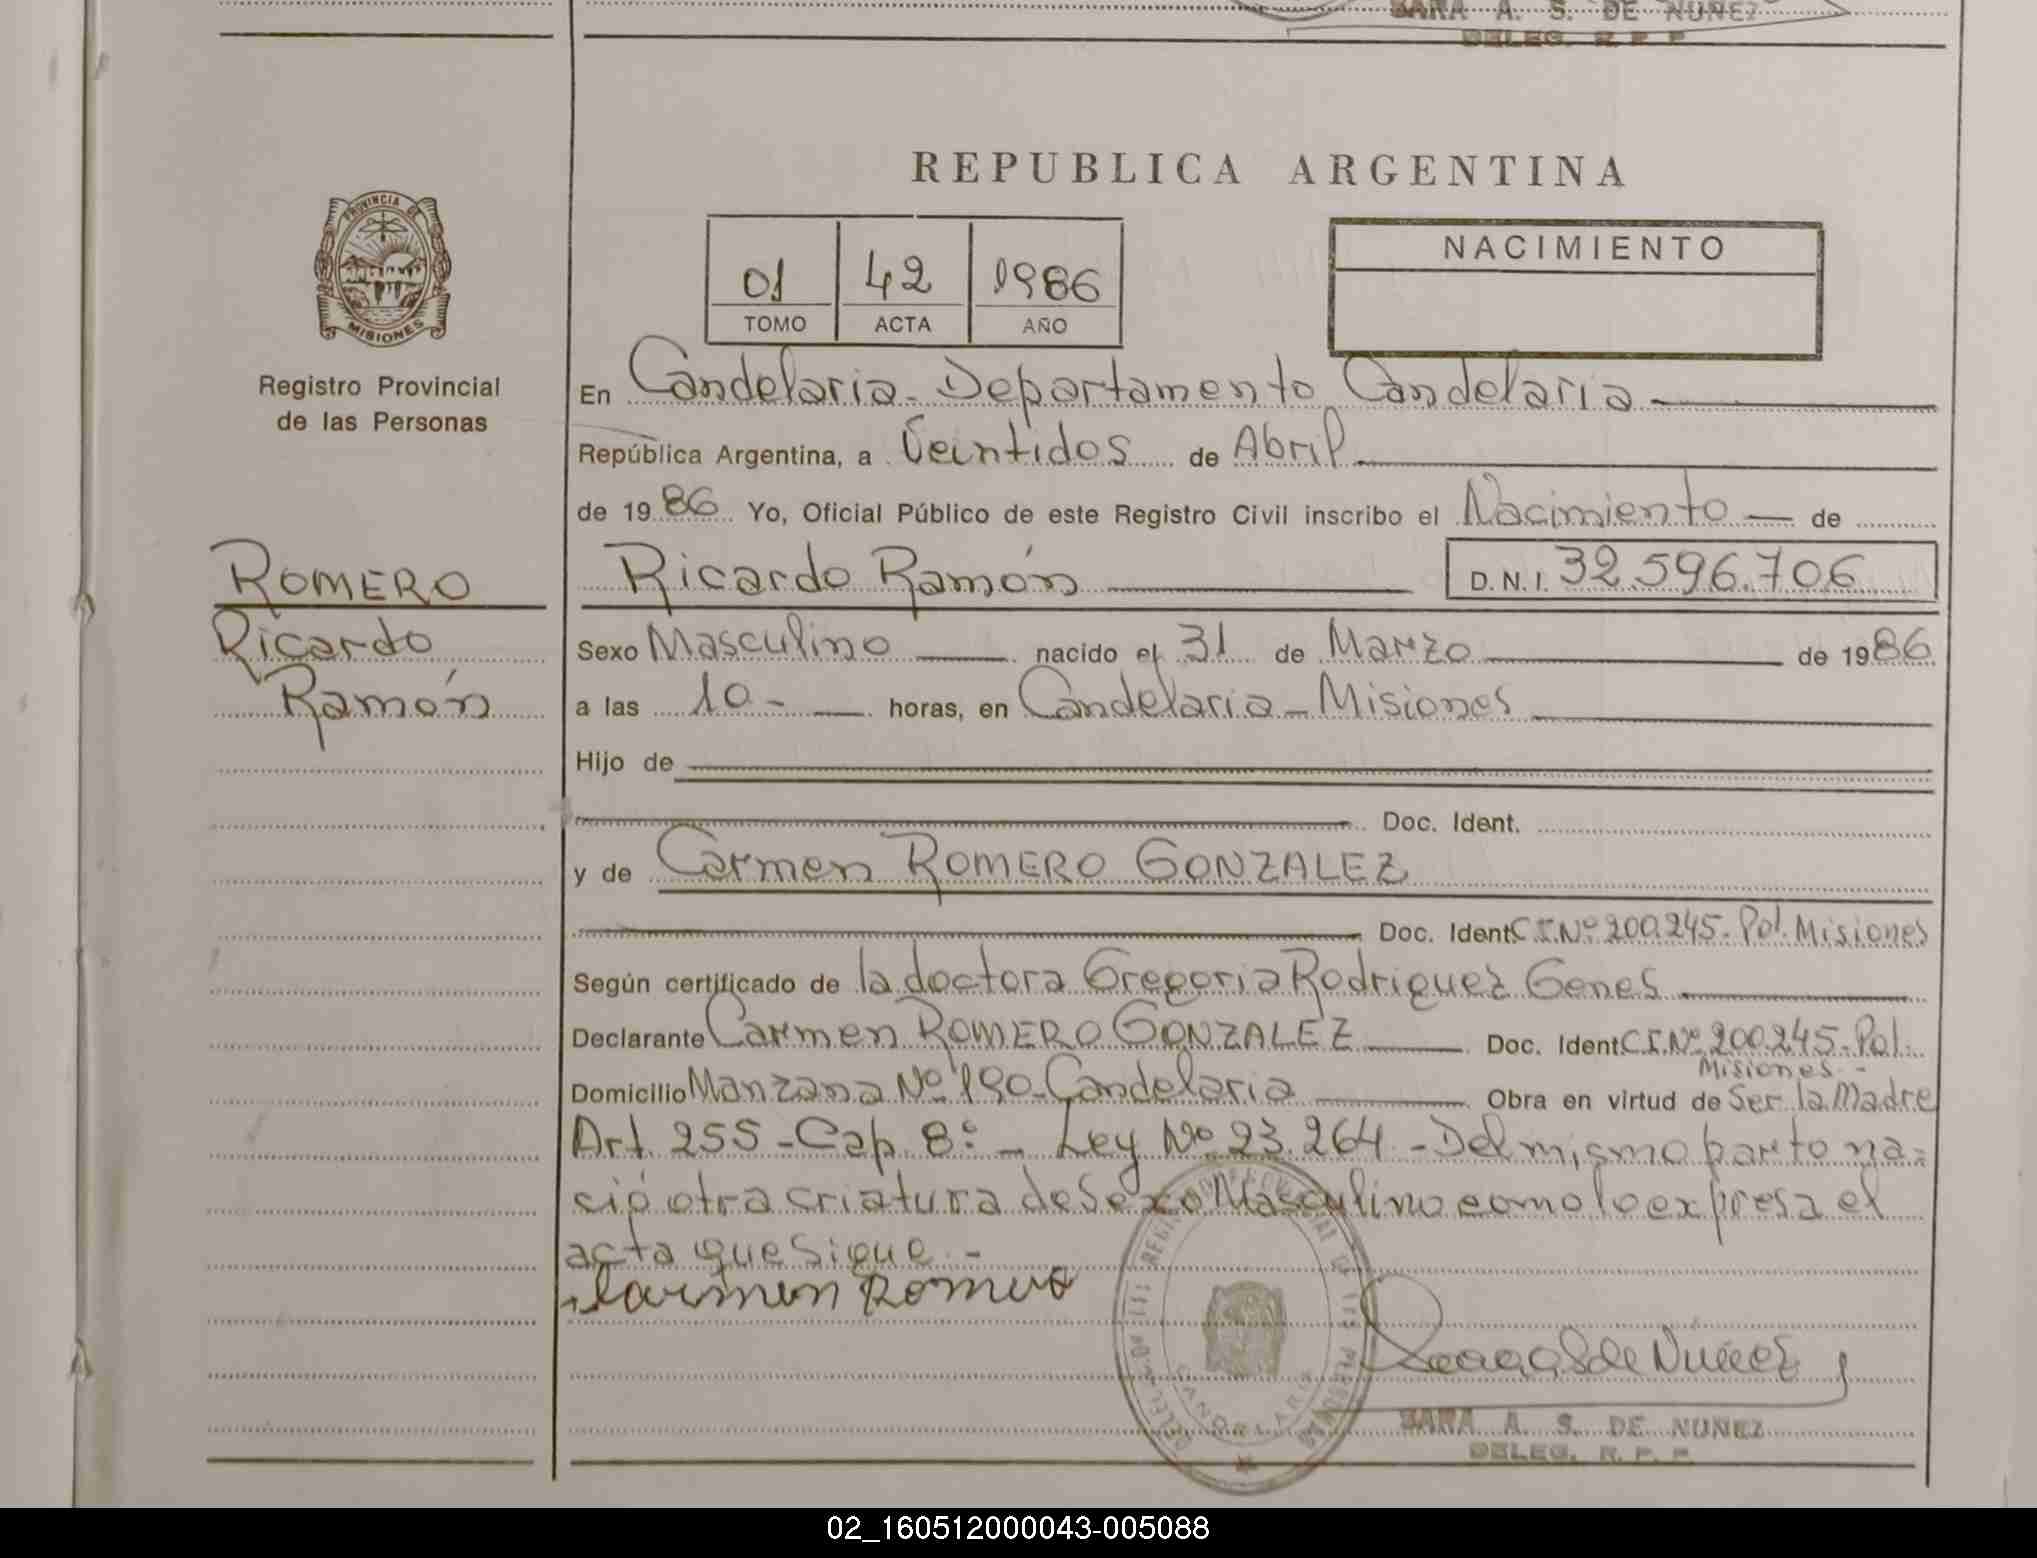 SARA A. S. DE NUÑEZ
DELEG. R. P. P.
REPUBLICA ARGENTINA
PROVINCIA DE
MISIONES
Registro Provincial
de las Personas
01 42 1986
TOMO ACTA AÑO
NACIMIENTO
En Candelaria - Departamento Candelaria
República Argentina, a Veintidos de Abril
de 1986 Yo, Oficial Público de este Registro Civil inscribo el Nacimiento de
ROMERO
Ricardo
Ramón
Ricardo Ramón D.N.I. 32.596.706
Sexo Masculino nacido el 31 de Marzo de 1986
a las 10- horas, en Candelaria - Misiones
Hijo de
Doc. Ident.
y de Carmen ROMERO GONZALEZ
Doc. Ident C.I.Nº 200.245- Pol. Misiones
Según certificado de la doctora Gregoria Rodriguez Genes
Declarante Carmen ROMERO GONZALEZ Doc. Ident C.I.Nº 200.245- Pol.
Misiones -
Domicilio Manzana Nº 190-Candelaria Obra en virtud de Ser la Madre
Art. 255 - Cap. 8º - Ley Nº 23.264 - Del mismo parto na=
ció otra criatura de Sexo Masculino como lo expresa el
acta que Sigue -
Carmen Romero
CANDELARIA
SARA A. S. DE NUÑEZ
DELEG. R. P. P.
02_160512000043-005088